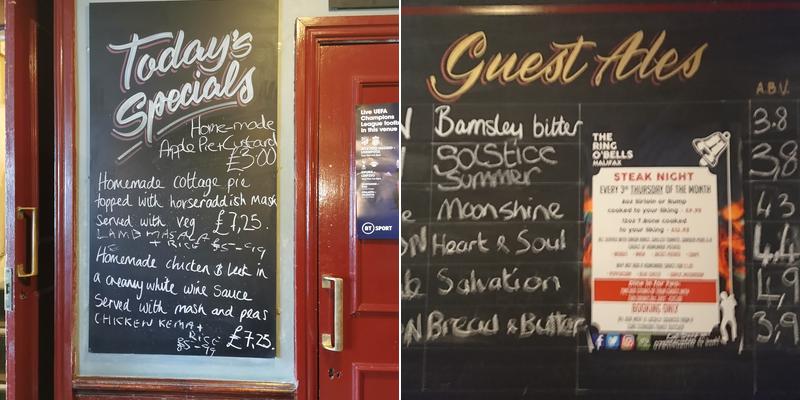 Today's
Specials
Home-made
Apple Pie + Custard
£3.00
Homemade cottage pie
topped with horseraddish mash
Served with veg £7,25.
LAMB MASALA
+ RICE £5-99
Homemade chicken & leek in
a creamy white wine sauce
Served with mash and peas
CHICKEN KEMA +
RICE
£5-99 £7,25.
Live UEFA
Champions
League football
in this venue
BT SPORT
Guest Ales
A.B.V.
Barnsley bitter 3.8
Solstice
Summer 3,8
Moonshine 4.3
Heart & Soul 4.4
Salvation 4,9
Bread & Butter 3,9
THE
RING
O'BELLS
HALIFAX
STEAK NIGHT
EVERY 3RD THURSDAY OF THE MONTH
8oz Sirloin or Rump
cooked to your liking - £9.95
12oz T.Bone cooked
to your liking - £12.95
Dine in for two:
BOOKING ONLY